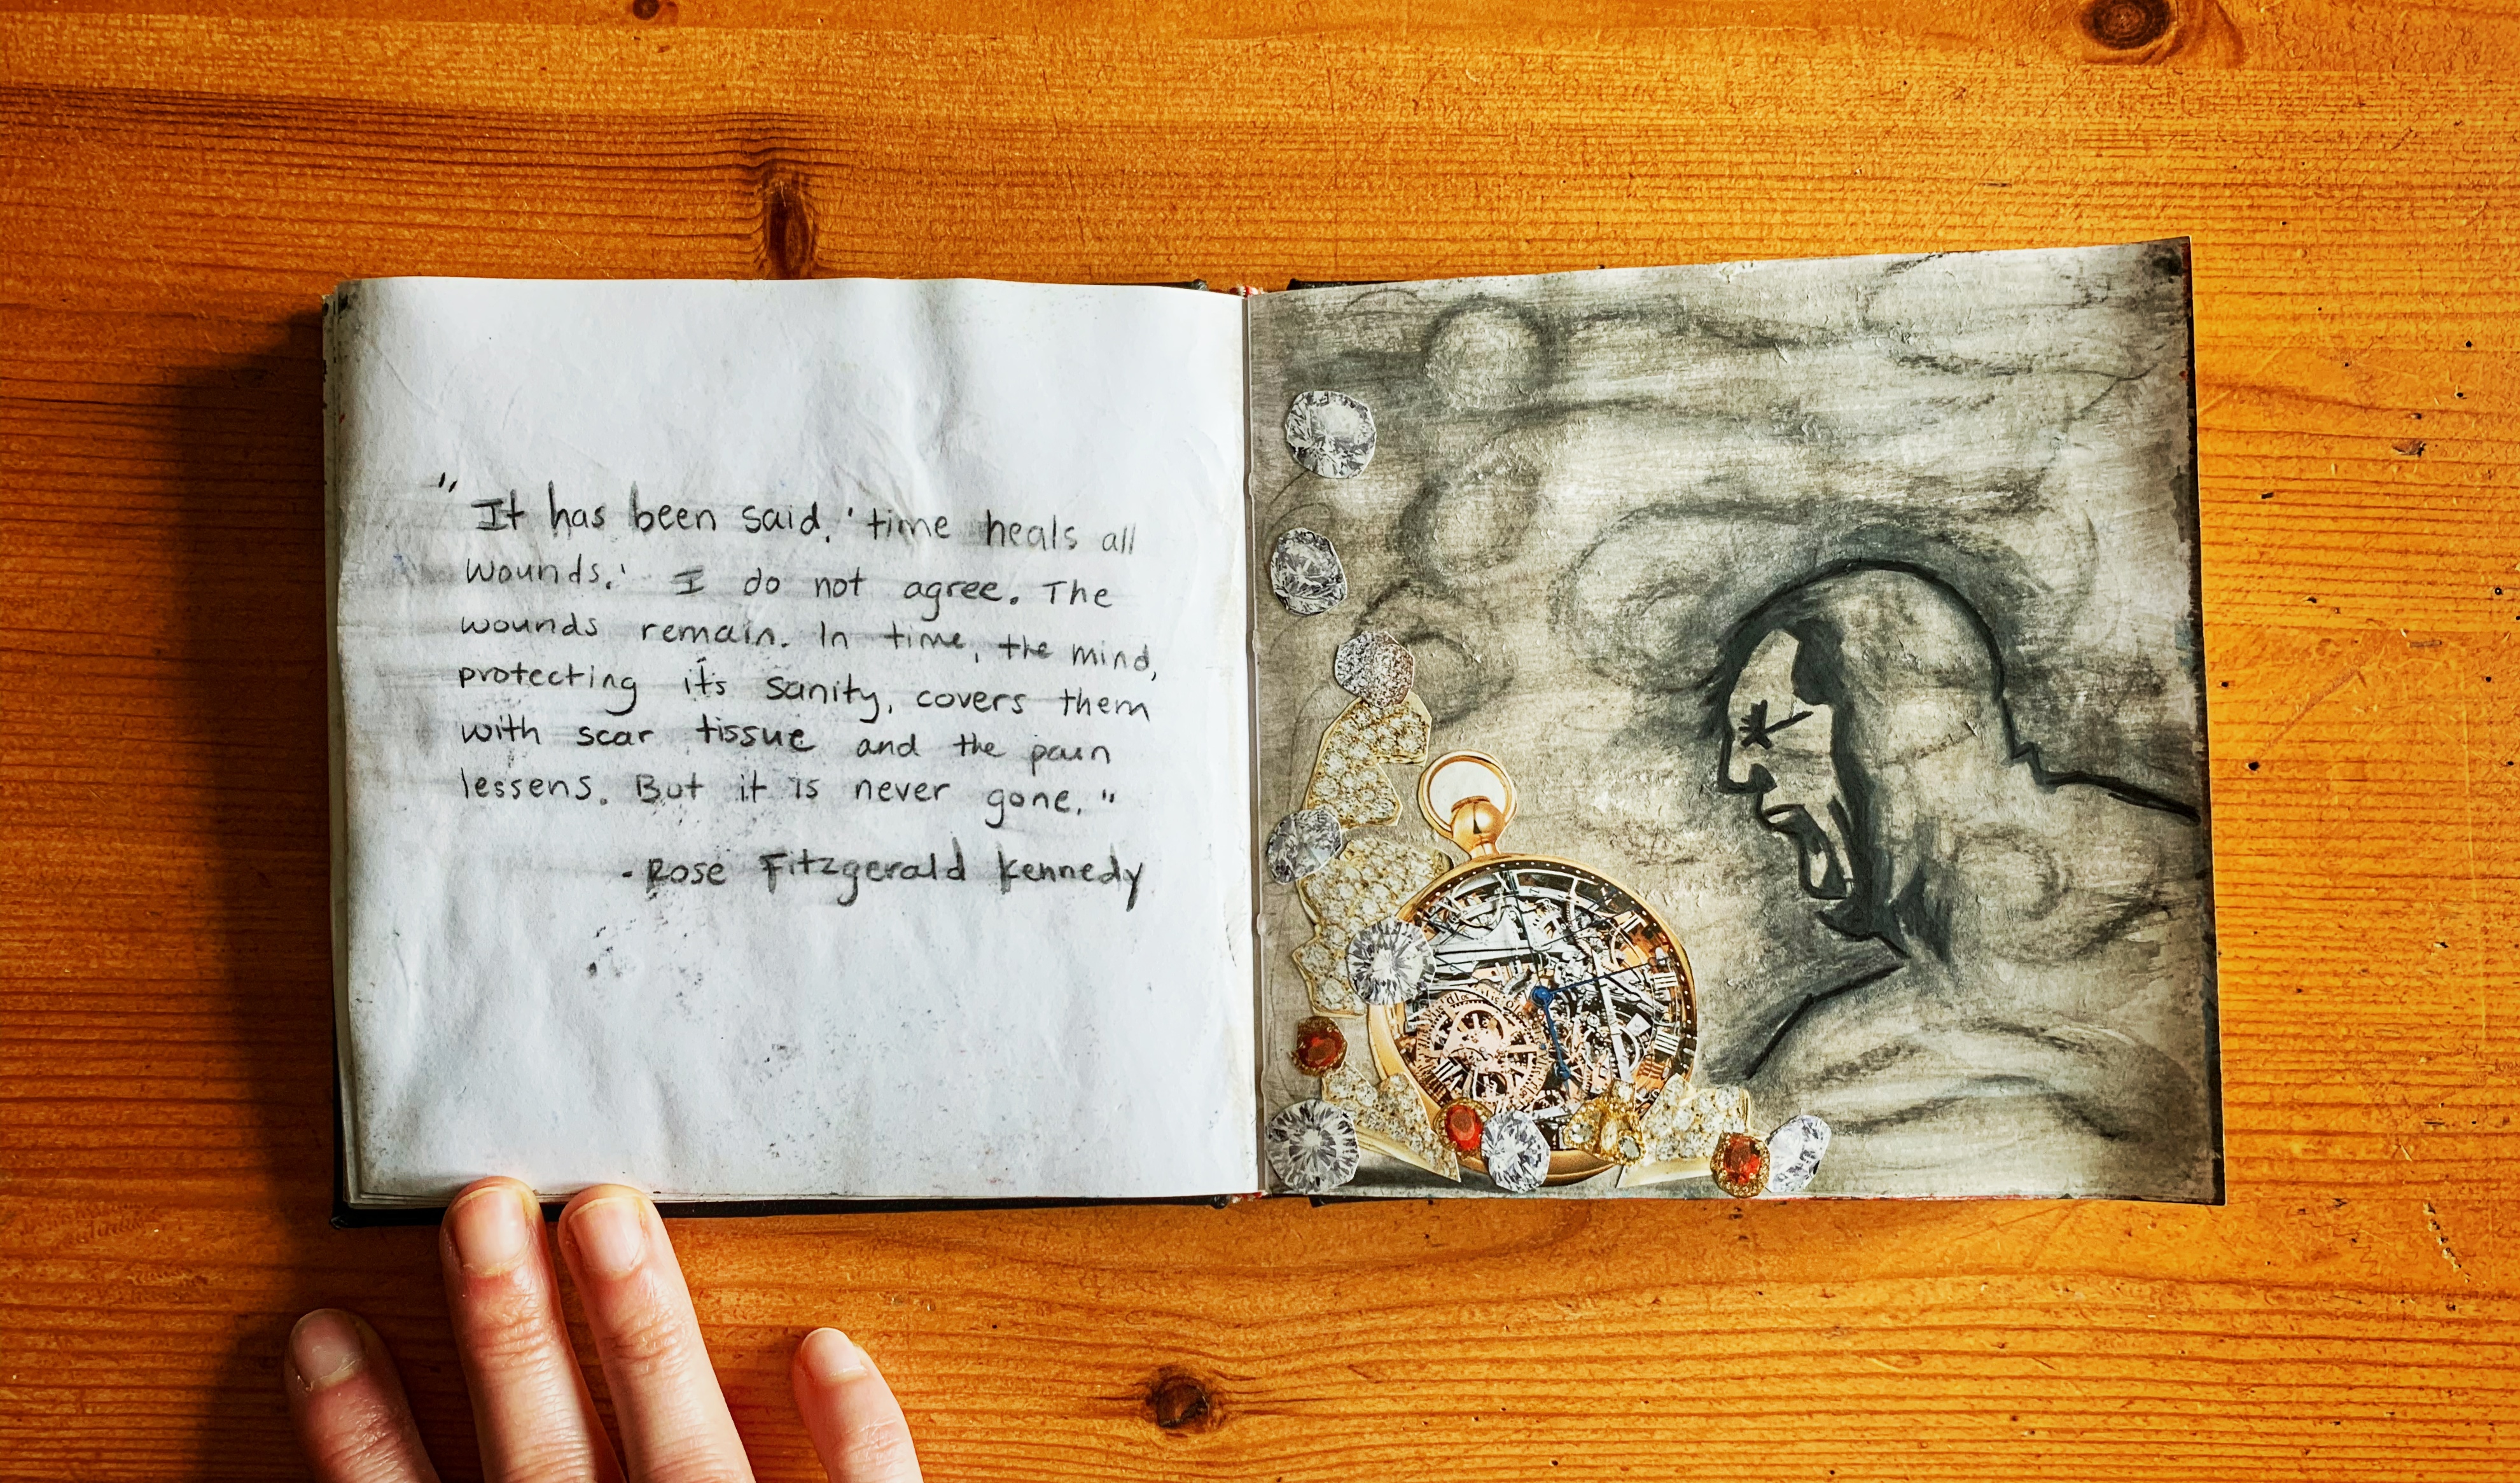 "It has been said, 'time heals all
wounds.' I do not agree. The
wounds remain. In time, the mind,
protecting it's sanity, covers them
with scar tissue and the pain
lessens. But it is never gone."
- Rose Fitzgerald Kennedy